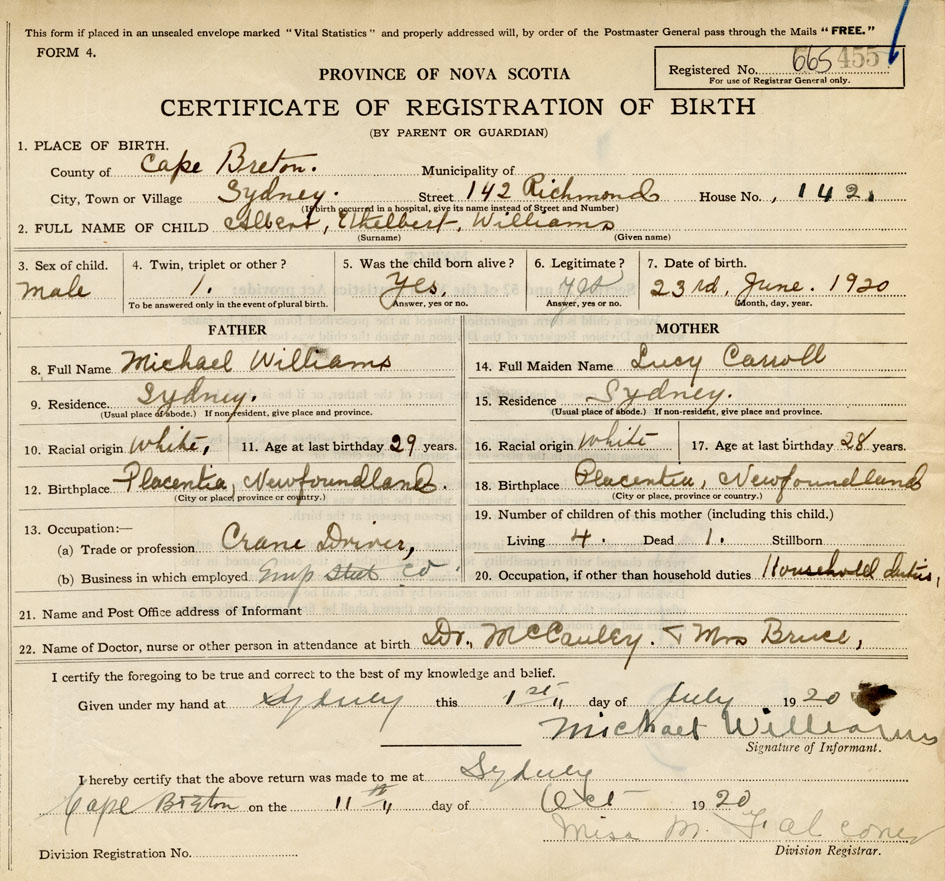 This form if placed in an unsealed envelope marked "Vital Statistics" and properly addressed will, by order of the Postmaster General pass through the Mails "FREE."
FORM 4.
Registered No. 665 455
For use of Registrar General only.
PROVINCE OF NOVA SCOTIA
CERTIFICATE OF REGISTRATION OF BIRTH
(BY PARENT OR GUARDIAN)
1. PLACE OF BIRTH.
County of Cape Breton. Municipality of
City, Town or Village Sydney. Street 142 Richmond House No. 142.
(If birth occurred in a hospital, give its name instead of Street and Number)
2. FULL NAME OF CHILD Albert, Ethelbert, Williams
(Surname) (Given name)
3. Sex of child. 4. Twin, triplet or other? 5. Was the child born alive? 6. Legitimate? 7. Date of birth.
Male 1. Yes, yes 23rd, June. 1920
To be answered only in the event of plural birth. Answer, yes or no. Answer, yes or no. Month, day, year.
FATHER MOTHER
8. Full Name Michael Williams 14. Full Maiden Name Lucy Carroll
9. Residence. Sydney. 15. Residence Sydney.
(Usual place of abode.) If non-resident, give place and province. (Usual place of abode.) If non-resident, give place and province.
10. Racial origin White, 11. Age at last birthday 29 years. 16. Racial origin White 17. Age at last birthday 28 years.
12. Birthplace Placentia, Newfoundland. 18. Birthplace Placentia, Newfoundland
(City or place, province or country.) (City or place, province or country.)
13. Occupation:— 19. Number of children of this mother (including this child.)
(a) Trade or profession Crane Driver, Living 4. Dead 1. Stillborn
(b) Business in which employed Emp Steel Co. 20. Occupation, if other than household duties Household duties,
21. Name and Post Office address of Informant
22. Name of Doctor, nurse or other person in attendance at birth Dr. McCauley. & Mrs Bruce,
I certify the foregoing to be true and correct to the best of my knowledge and belief.
Given under my hand at Sydney this 1st day of July 1920
Michael Williams
Signature of Informant.
I hereby certify that the above return was made to me at Sydney
Cape Breton on the 11th day of Oct 1920
Miss M. Falconer
Division Registration No. Division Registrar.